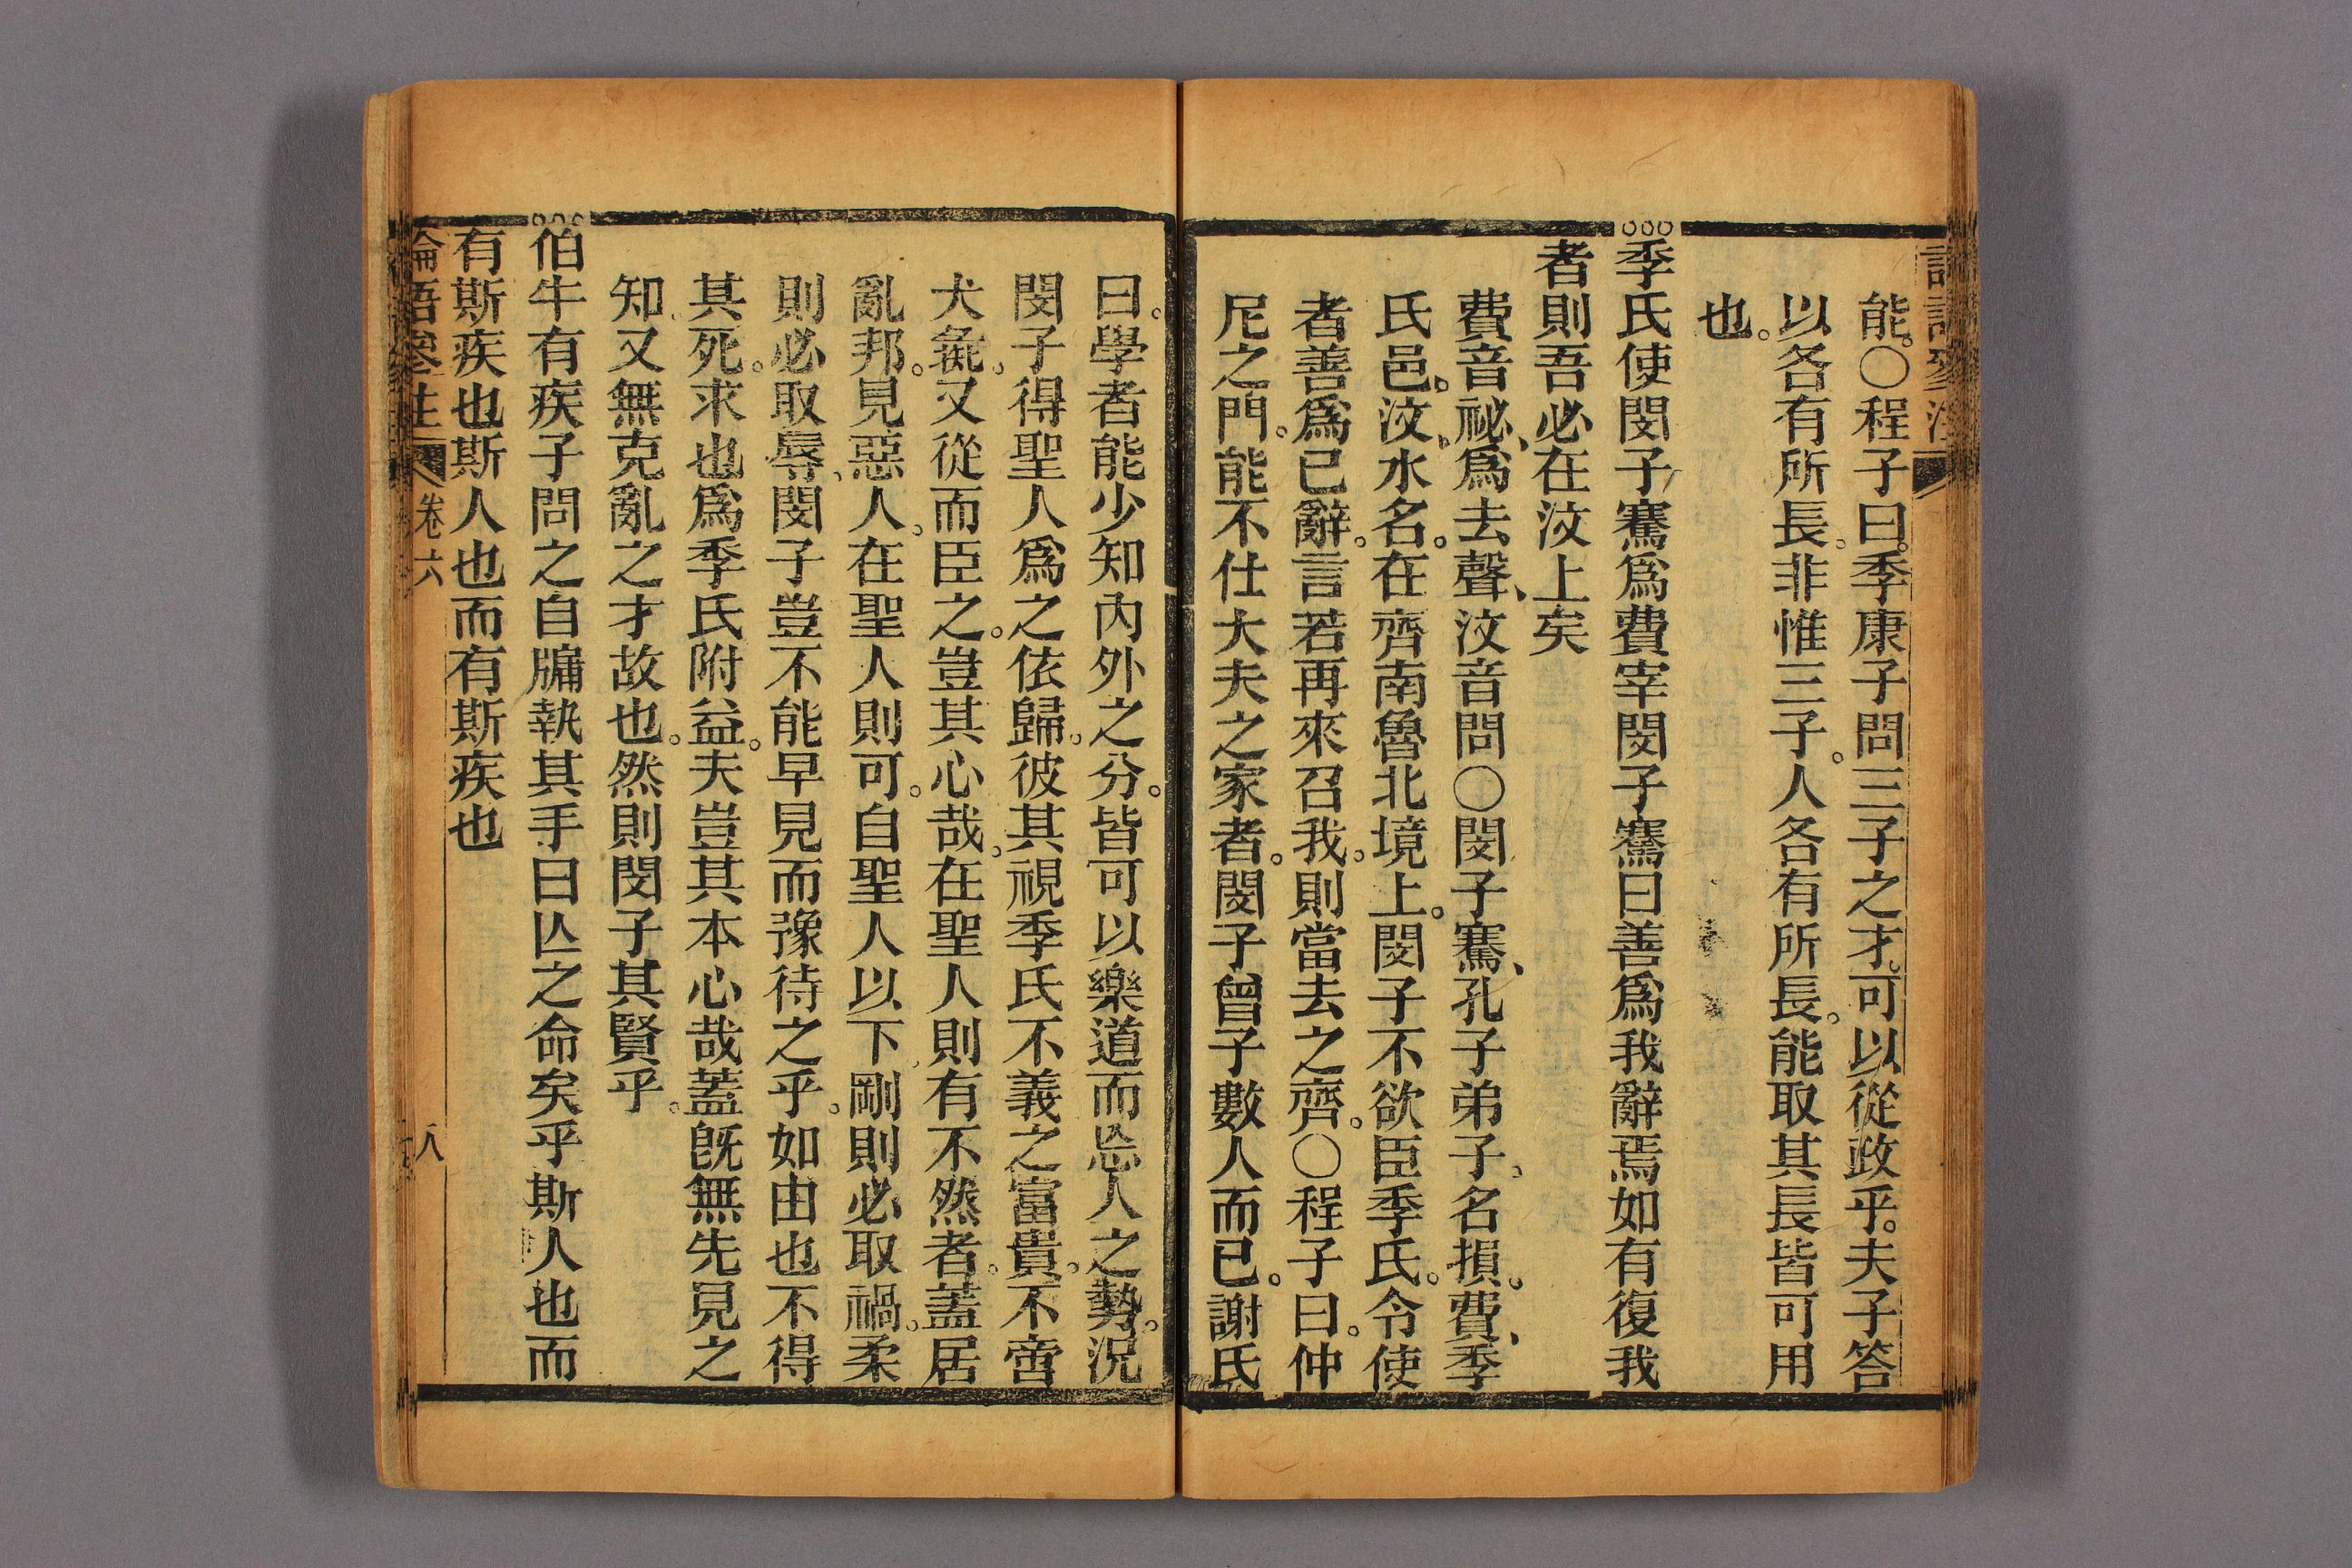 能。○程子曰。季康子問三子之才。可以從政乎。夫子答
以各有所長。非惟三子。人各有所長。能取其長皆可用
也。
季氏使閔子騫爲費宰閔子騫曰善爲我辭焉如有復我
者則吾必在汶上矣
費音祕、爲去聲、汶音問○閔子騫、孔子弟子。名損。費、季
氏邑。汶、水名。在齊南魯北境上。閔子不欲臣季氏。令使
者善爲己辭。言若再來召我。則當去之齊。○程子曰。仲
尼之門。能不仕大夫之家者。閔子曾子數人而已。謝氏
曰。學者能少知內外之分。皆可以樂道而忘人之勢。況
閔子得聖人爲之依歸。彼其視季氏不義之富貴。不啻
犬彘。又從而臣之。豈其心哉。在聖人則有不然者。蓋居
亂邦。見惡人。在聖人則可。自聖人以下、剛則必取禍。柔
則必取辱、閔子豈不能早見而豫待之乎。如由也不得
其死。求也爲季氏附益。夫豈其本心哉蓋旣無先見之
知、又無克亂之才故也。然則閔子其賢乎。
伯牛有疾子問之自牖執其手曰亾之命矣乎斯人也而
有斯疾也斯人也而有斯疾也
論語 卷六 八